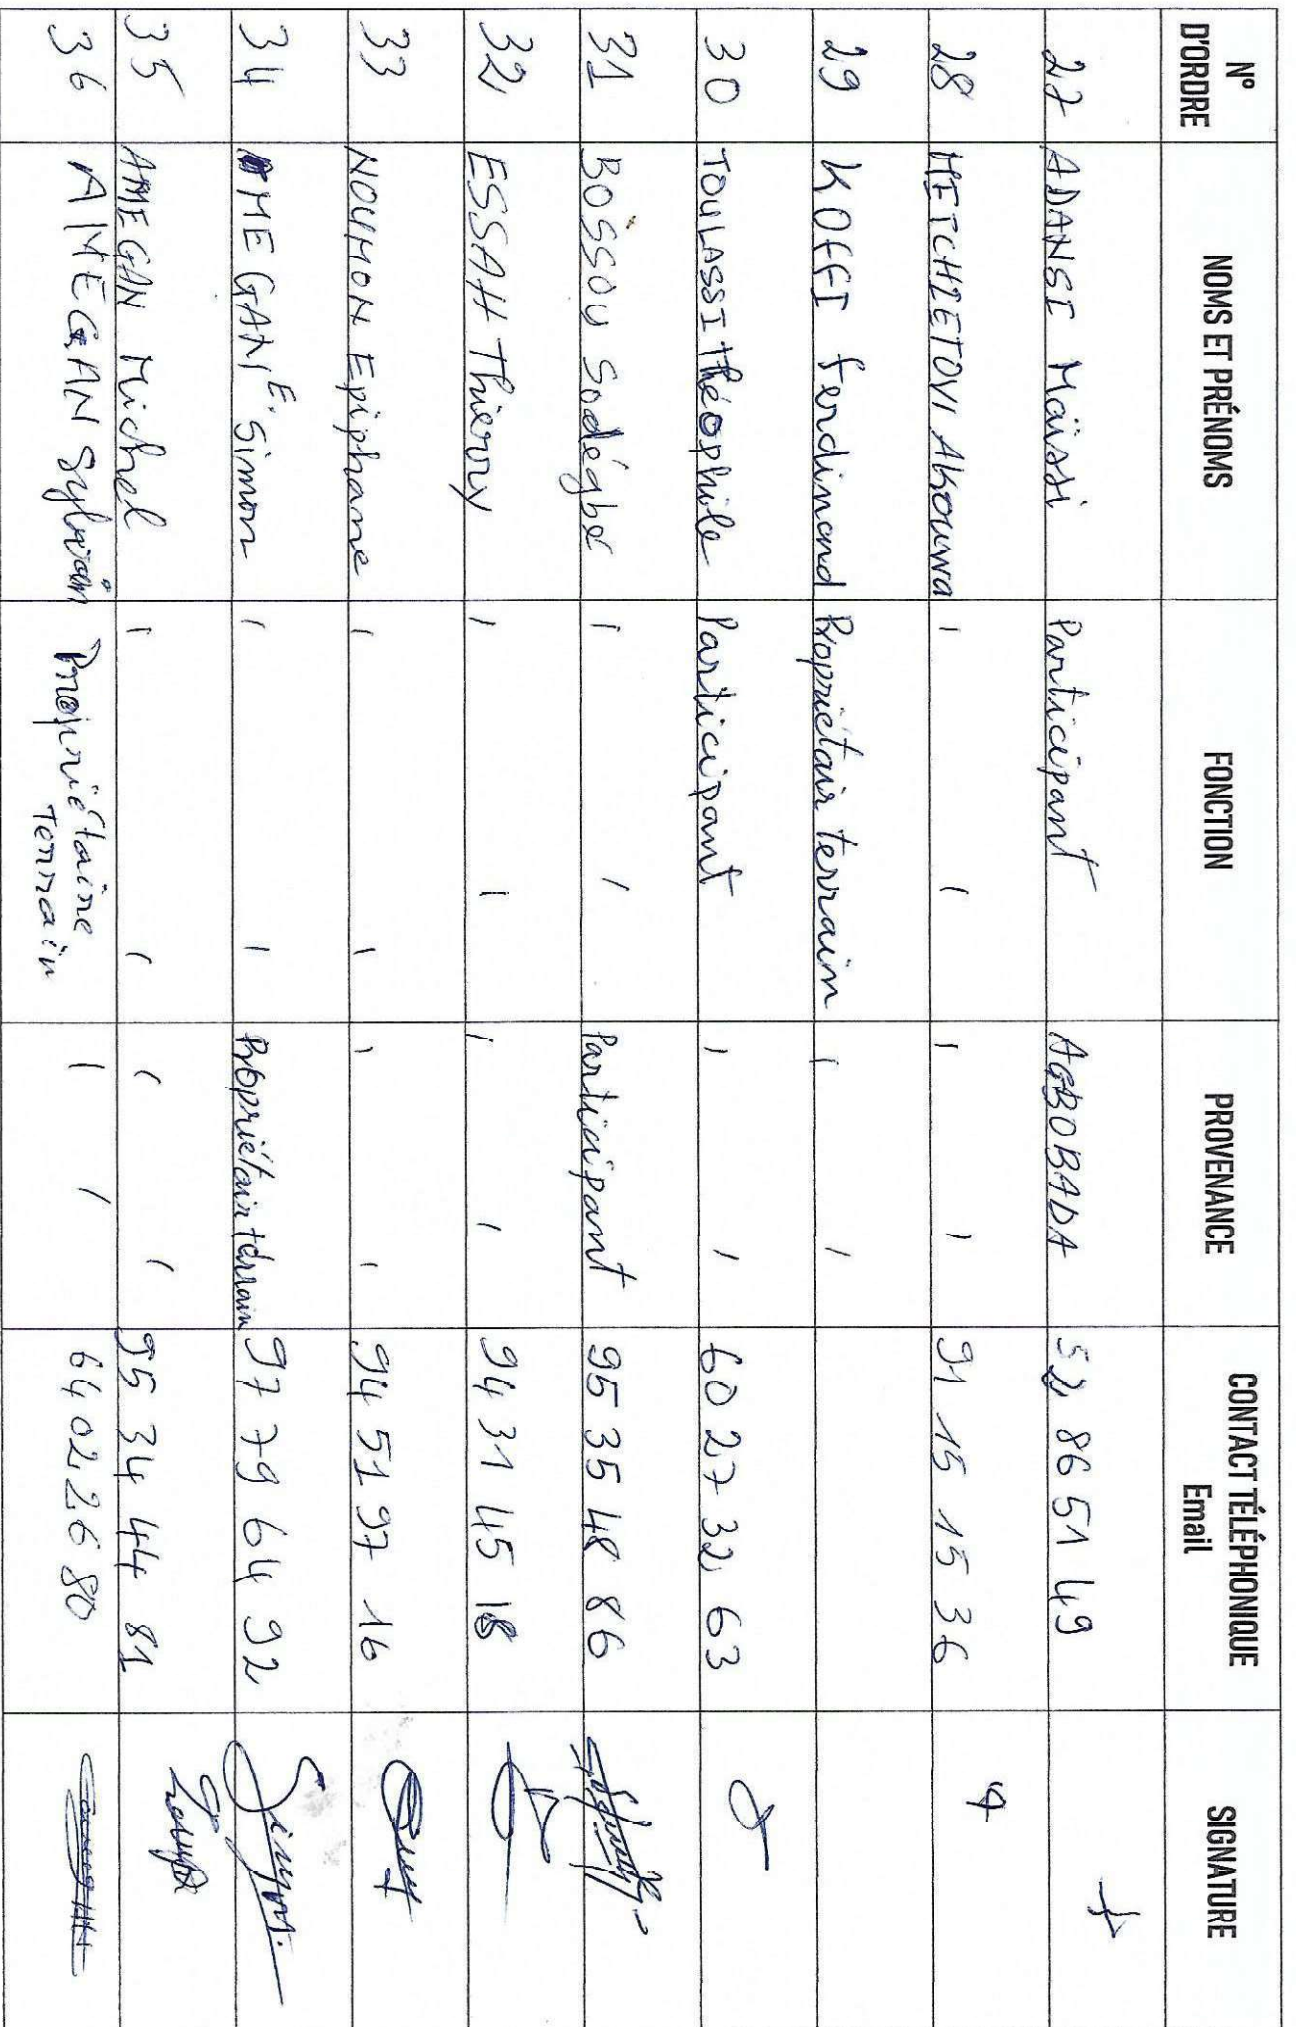 N° D'ORDRE | NOMS ET PRÉNOMS | FONCTION | PROVENANCE | CONTACT TÉLÉPHONIQUE Email | SIGNATURE
27 ADANSI Maïssi Participant AGBOBADA 52 86 51 49
28 METCHIETOVI Akouwa ı ı ı ı 91 15 15 36
29 KOFFI ferdinand Propriétair terrain ı ı
30 TOULASSI théophile Participant ı ı 60 27 32 63
31 BOSSOU Sodégbé ı ı Participant 95 35 48 86
32 ESSAH Thierry ı ı ı ı 94 31 45 18
33 NOUMON Epiphane ı ı ı ı 94 51 97 16
34 AMEGAN E. Simon ı ı Propriétair terrain 97 79 64 92
35 AMEGAN Michel ı ı ı ı 95 34 44 81
36 AMEGAN Sylvain Propriétaire Terrain ı ı 64 02 26 80